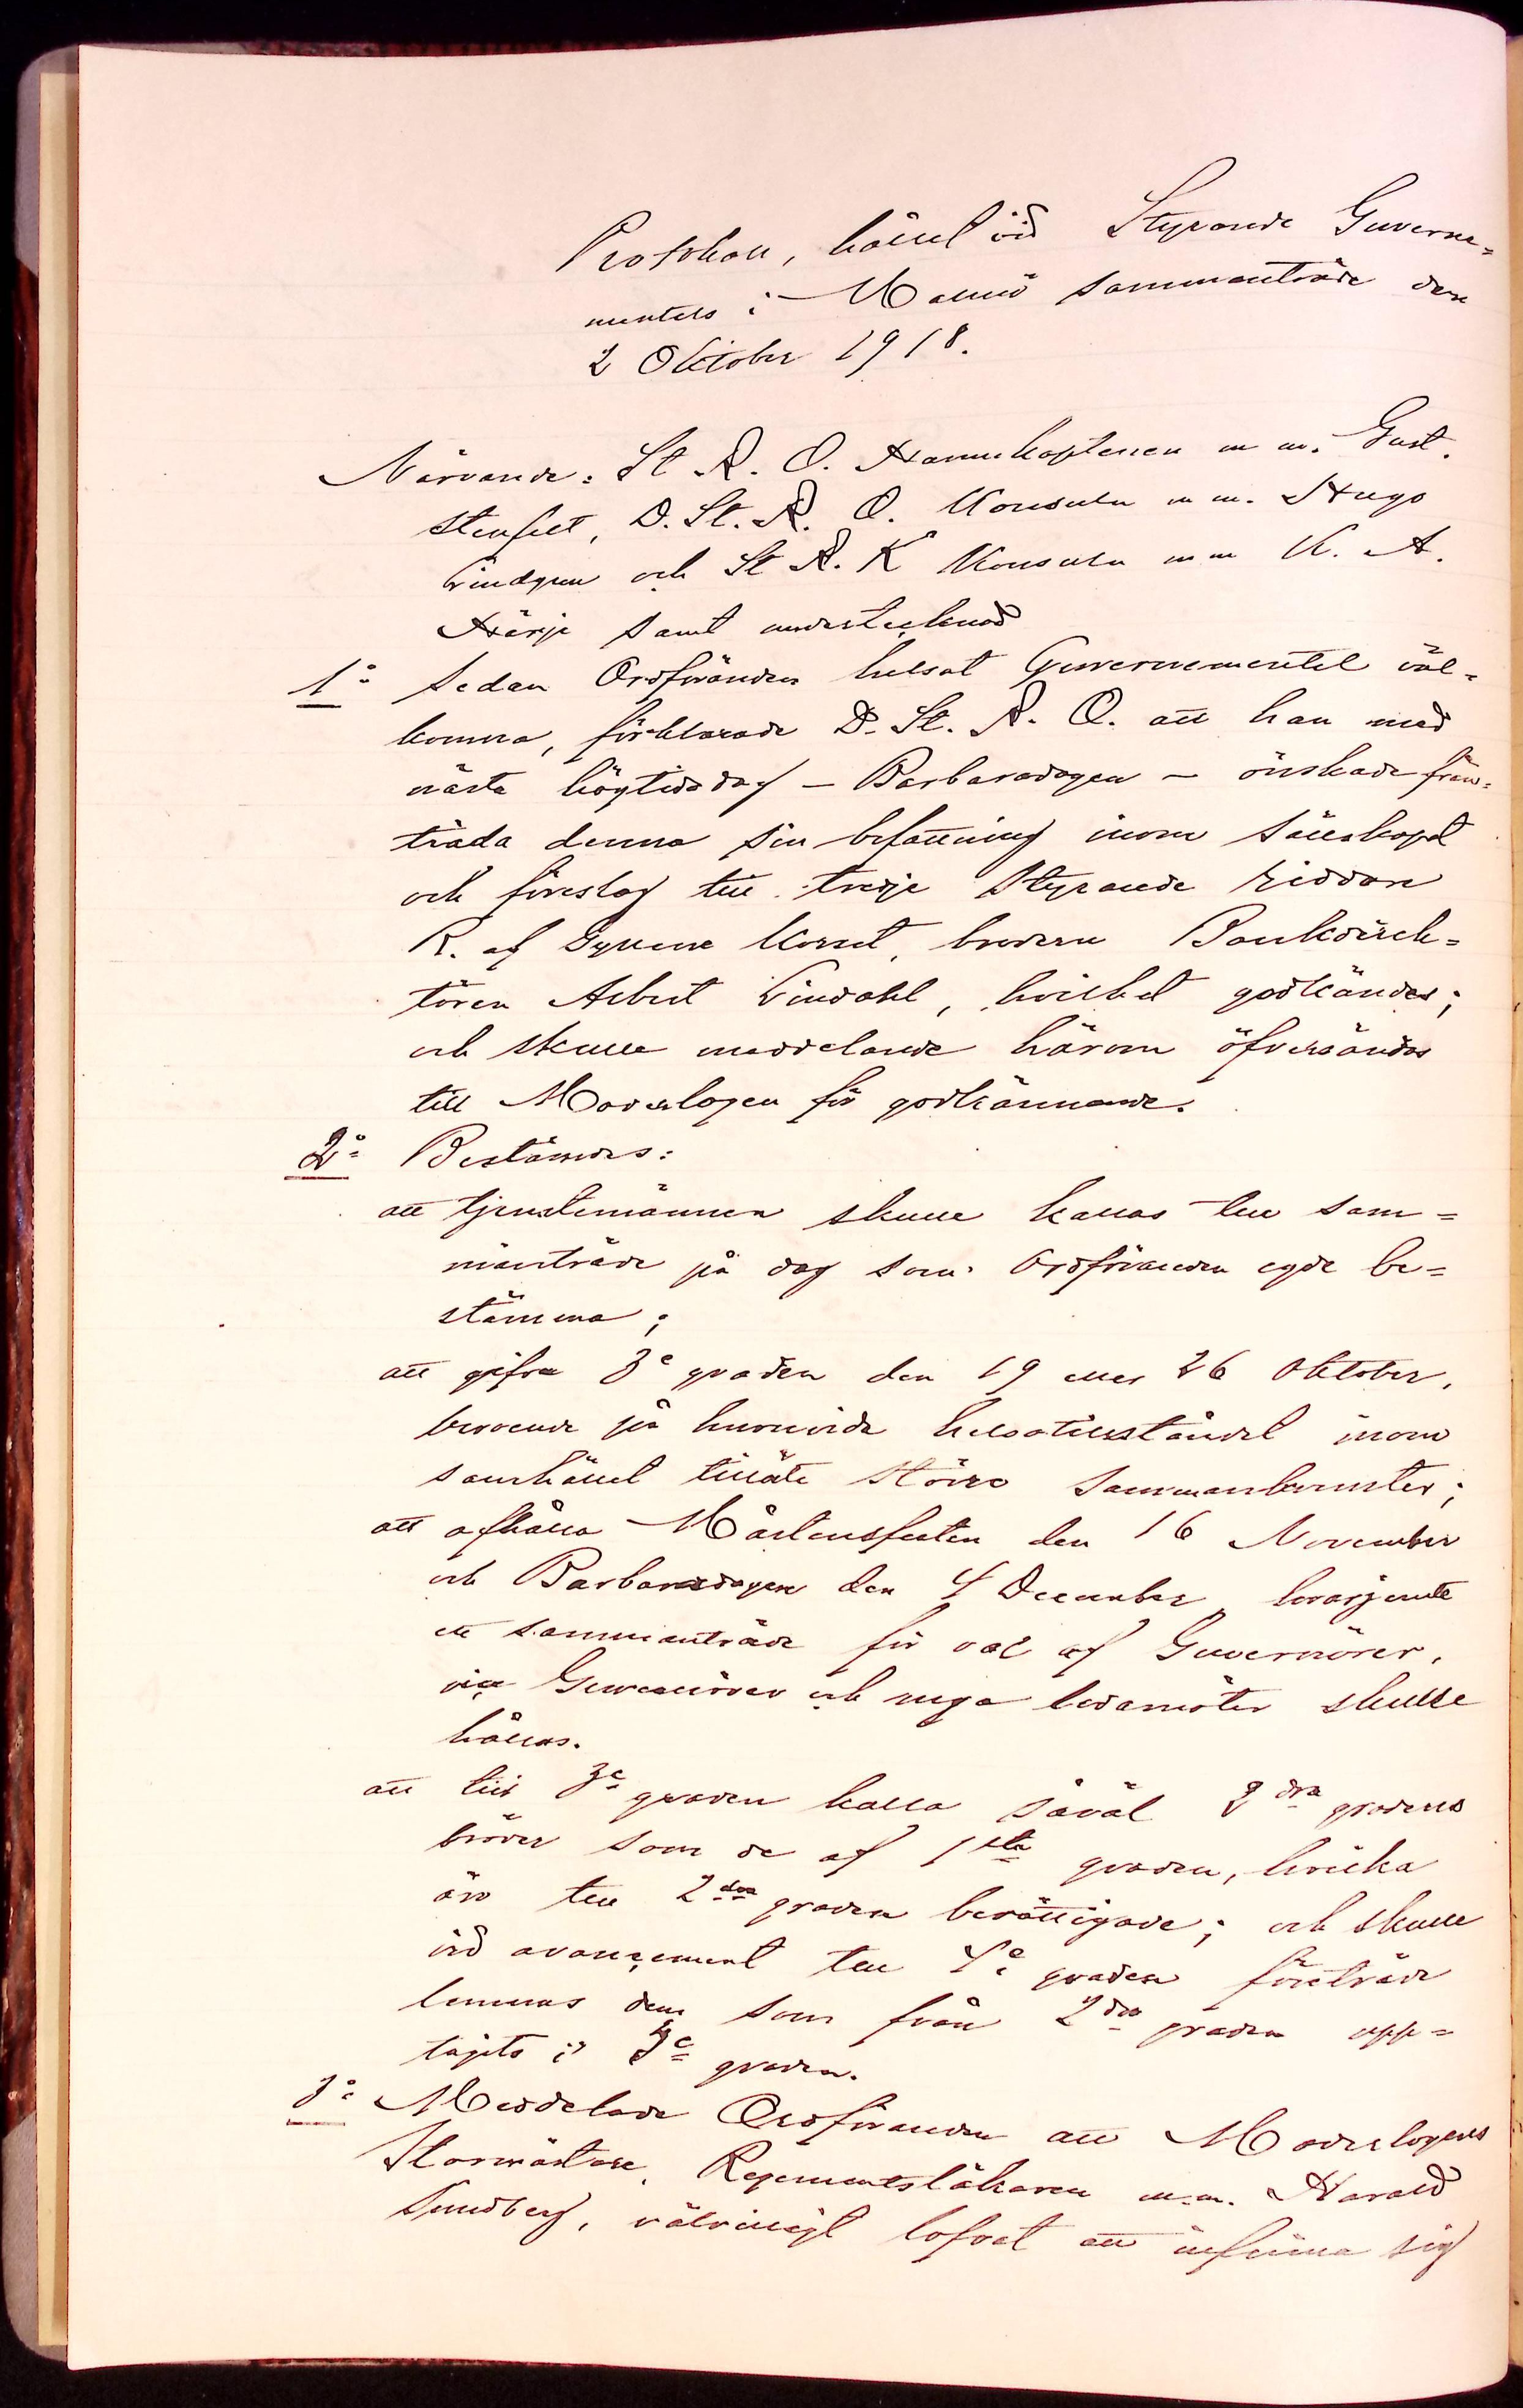 Protokoll, hållet vid Styrande Guverne-
mentets i Malmö sammanträde den
2 Oktober 1918.
Närvarande: St R. O. Hamnkaptenen m m. Gust.
Stenfelt, D. St. R. O. Konsuln m m. Hugo
Lindgren och St R. K Konsuln m m K. A.
Härje samt undertecknad
1º Sedan Ordföranden helsat Guvernementet väl-
komna, förklarade D. St. R. O. att han med
nästa högtidsdag – Barbaradagen – önskade från-
träda denna sin befattning inom Sällskapet
och föreslog till tredje Styrande riddare
R. af Gyllene Korset, brodern Bankdirek-
tören Albert Lindahl, hvilket godkändes;
och skulle meddelande härom öfversändas
till Moderlogen för godkännande.
2º Bestämdes:
att tjenstemännen skulle kallas till sam-
manträde på dag som Ordföranden egde be-
stämma;
att gifva 3e graden den 19 eller 26 Oktober,
beroende på huruvida helsotillståndet inom
samhället tilläte större sammankomster;
att afhålla Mårtensfesten den 16 November
och Barbaradagen den 4 December, hvarjemte
ett sammanträde för val af Guvernörer,
vice Guvernörer och nya ledamöter skulle
hållas.
att till 3e graden kalla såväl 2dra gradens
bröder som de af 1sta graden, hvilka
äro till 2dra graden berättigade; och skulle
vid avancement till 4e graden företräde
lemnas dem som från 2dra graden upp-
tagits i 3e graden.
3º Meddelade Ordföranden att Moderlogens
Stormästare, Regementsläkaren m.m. Harald
Sundberg, välvilligt lofvat att infinna sig